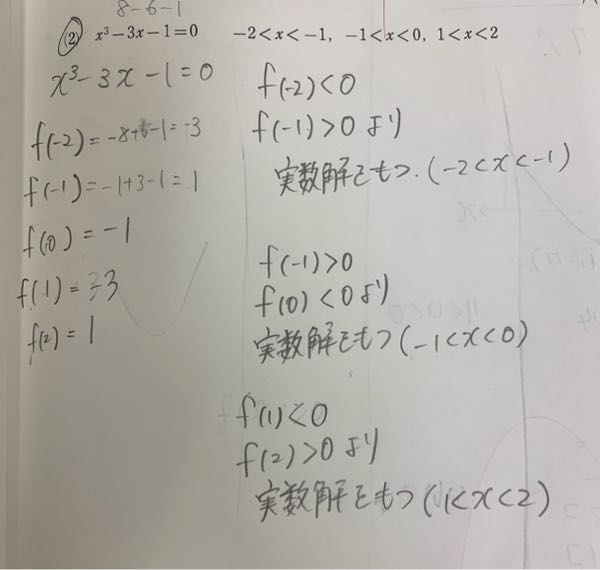 8-6-1
(2) x³-3x-1=0 -2<x<-1, -1<x<0, 1<x<2
x³-3x-1=0
f(-2)=-8+6-1=-3
f(-1)=-1+3-1=1
f(0)=-1
f(1)=-3
f(2)=1
f(-2)<0
f(-1)>0より
実数解をもつ.(-2<x<-1)
f(-1)>0
f(0)<0より
実数解をもつ(-1<x<0)
f(1)<0
f(2)>0より
実数解をもつ(1<x<2)